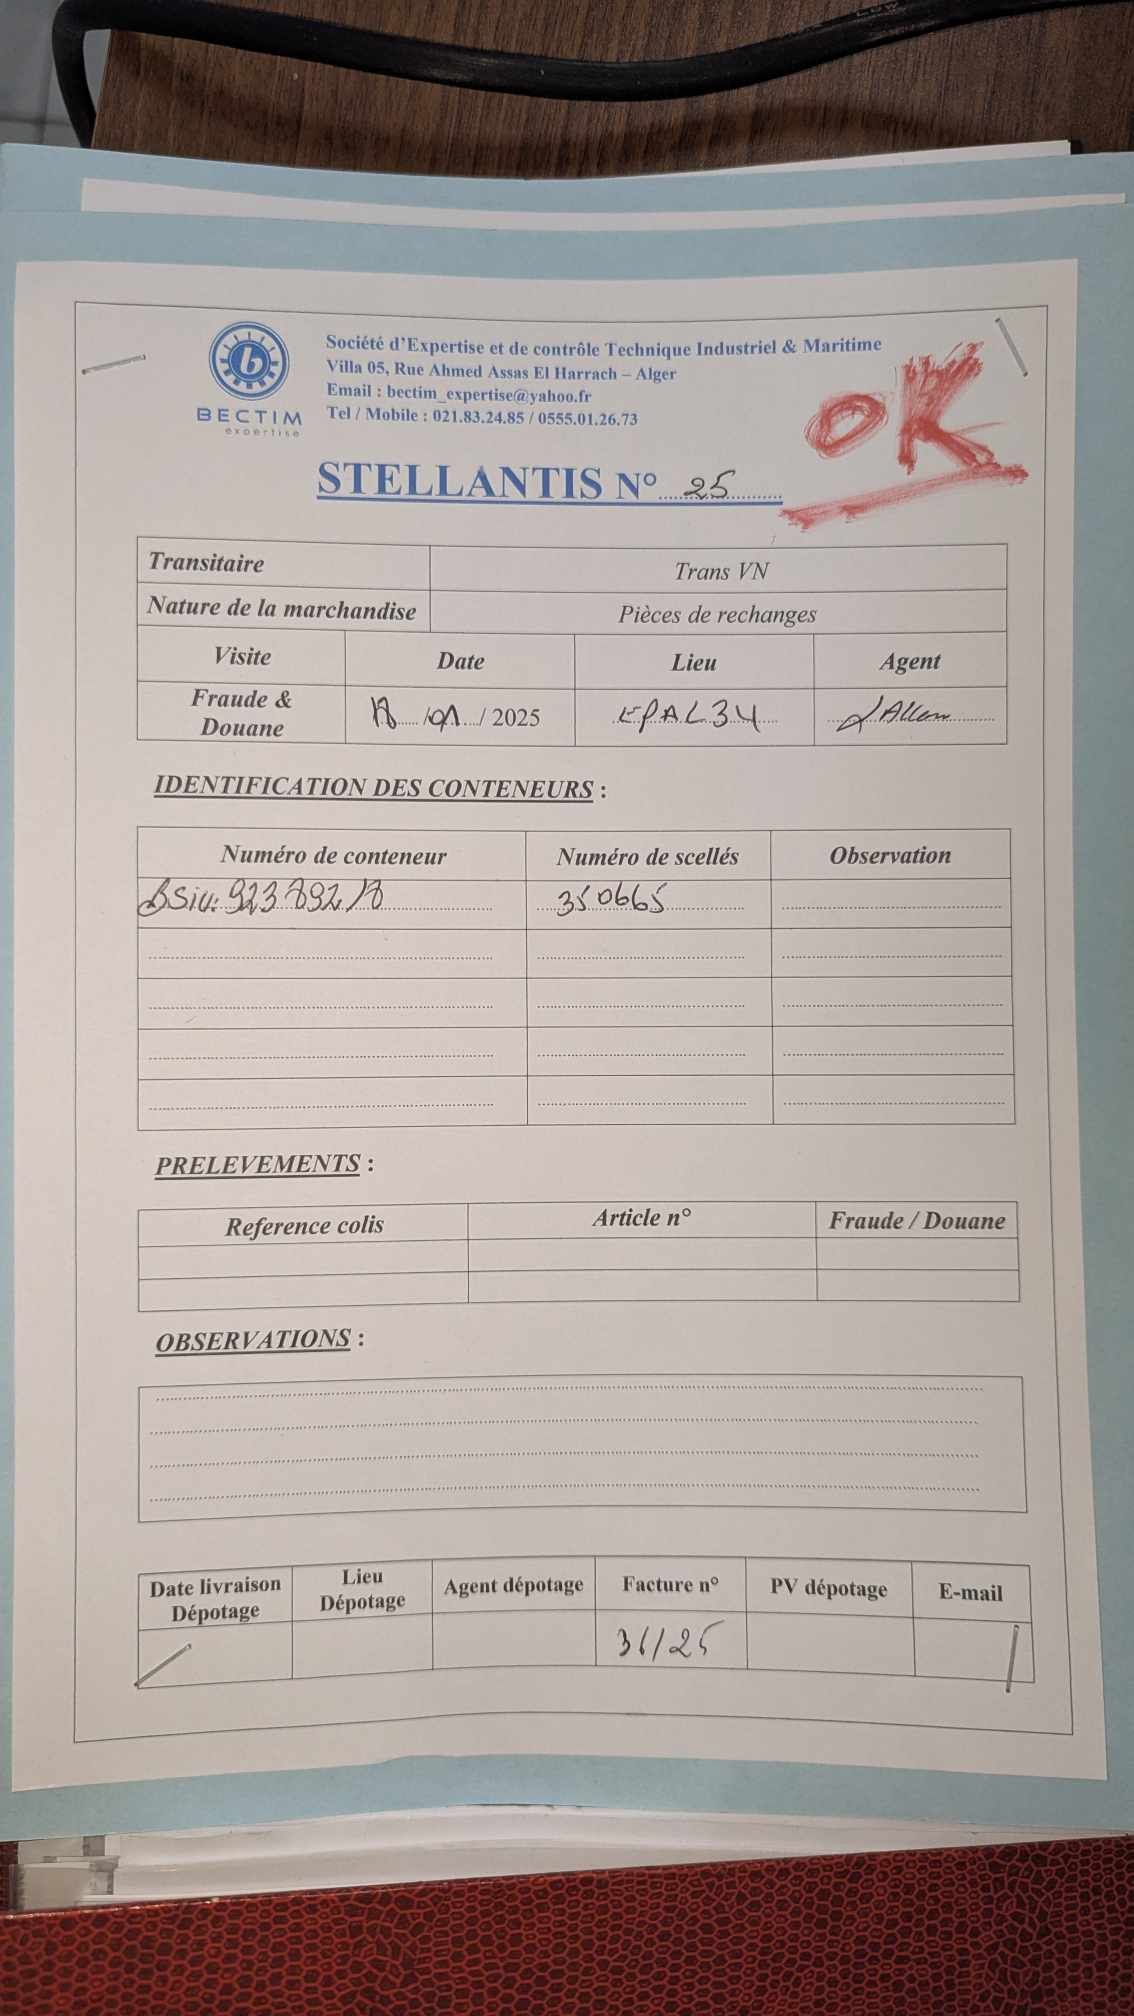 Société d'Expertise et de contrôle Technique Industriel & Maritime
Villa 05, Rue Ahmed Assas El Harrach – Alger
Email : bectim_expertise@yahoo.fr
Tel / Mobile : 021.83.24.85 / 0555.01.26.73
b
BECTIM
expertise
OK
STELLANTIS N° 25
Transitaire Trans VN
Nature de la marchandise Pièces de rechanges
Visite Date Lieu Agent
Fraude & Douane /01/ 2025 EPAL34
IDENTIFICATION DES CONTENEURS :
Numéro de conteneur Numéro de scellés Observation
350665
PRELEVEMENTS :
Reference colis Article n° Fraude / Douane
OBSERVATIONS :
Date livraison Dépotage Lieu Dépotage Agent dépotage Facture n° PV dépotage E-mail
36/25